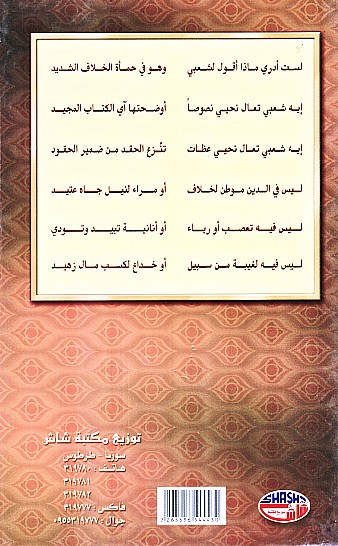 لست أدري ماذا أقول لشعبي وهو في حمأة الخلاف الشديد
إيه شعبي تعال نحيي نصوصاً أوضحتها آي الكتاب المجيد
إيه شعبي تعال نحيي عظات تنزع الحقد من ضمير الحقود
ليس في الدين موطن لخلاف أو مراء لنيل جاه عتيد
ليس فيه تعصب أو رياء أو أنانية تبيد وتودي
ليس فيه لغيبة من سبيل أو خداع لكسب مال زهيد
توزيع مكتبة شاش
سوريا - طرطوس
هاتف : ٣١٩٧٨٠
٣١٩٧٨١
٣١٩٧٨٢
فاكس : ٣١٩٧٧٧
جوال : ٠٩٥٥٣١٩٧٧٧
SHASH
شاش